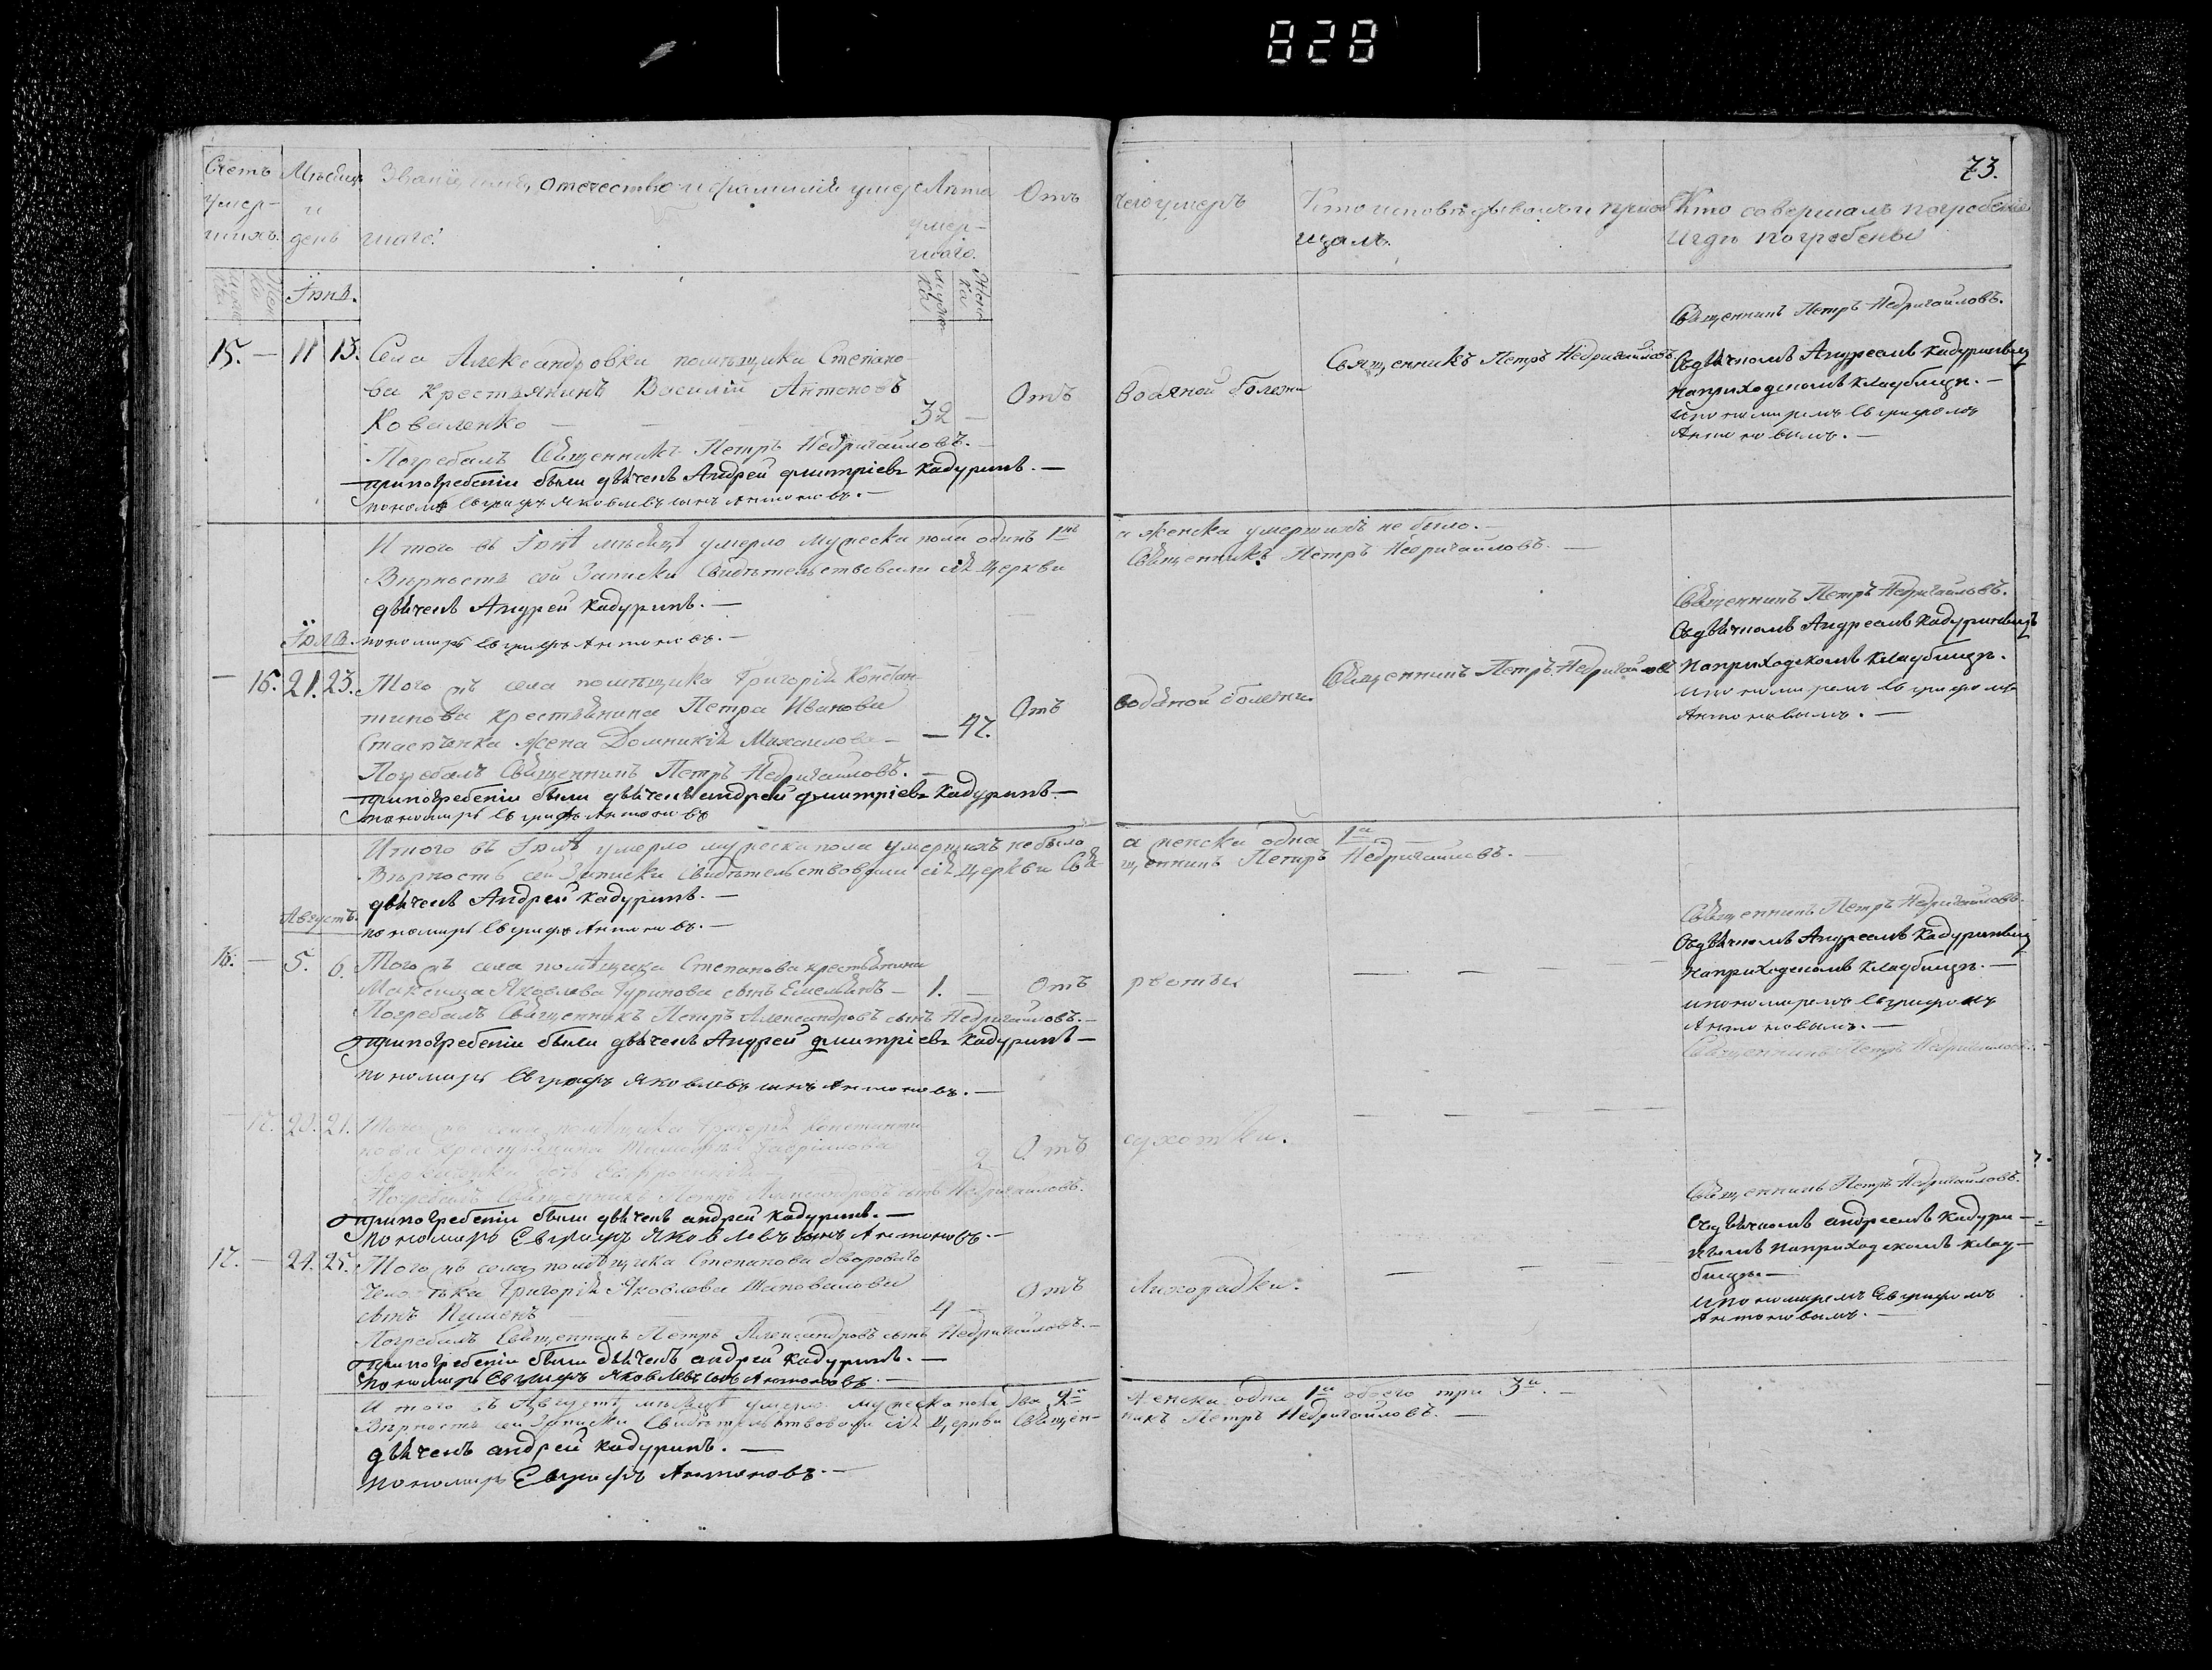 828
73.
Счетъ умер-
шихъ.
Мѣсяцъ
и
день
Званіе, имя, отечество и фамилія умер
шаго.
Лѣта
умер-
шаго.
Отъ
чего умеръ
Кто исповѣдывалъ и пріоб
щалъ.
Кто совершалъ погребеніе
и гдѣ погребены
Іюнь.
15. — 11 13. Села Александровки помѣщика Степано
ва крестьянинъ Василій Антоновъ
Коваленко — — — 32 —
Отъ
водяной болезни
Священникъ Петръ Недригайловъ
Священникъ Петръ Недригайловъ.
Съ дьячкомъ Андреемъ Кадуринымъ
на приходскомъ кладбищѣ. —
и пономаремъ Евграфомъ
Антоновымъ. —
Погребалъ Священникъ Петръ Недригайловъ. —
при погребеніи были дьячекъ Андрей Дмитріевъ Кадуринъ. —
пономарь Евграфъ Яковлевъ сынъ Антоновъ. —
Итого въ Іюнѣ мѣсяцѣ умерло мужеска пола одинъ 1нъ
а женска умершихъ не было. —
Вѣрность сей Записки Свидѣтельствовали сія Церкви
Священникъ Петръ Недригайловъ. —
дьячекъ Андрей Кадуринъ. —
Іюль.
пономарь Евграфъ Антоновъ. —
— 15. 21. 23. Того жъ села помѣщика Григорія Констан
тинова крестьянина Петра Иванова
жена Домникія Махаилова — — 47.
Отъ
водяной болезни.
Священникъ Петръ Недригайловъ
Священникъ Петръ Недригайловъ.
Съ дьячкомъ Андреемъ Кадуринымъ
на приходскомъ кладбищѣ.
и пономаремъ Евграфомъ
Антоновымъ. —
Погребалъ Священникъ Петръ Недригайловъ. —
при погребеніи были дьячекъ андрей Дмитріевъ Кадуринъ —
пономарь Евграфъ Антоновъ
Итого въ Іюлѣ умерло мужеска пола умершихъ не было
а женска одна 1а —
Вѣрность сей Записки Свидѣтельствовали сія Церкви Свя-
щенникъ Петръ Недригайловъ. —
дьячекъ Андрей Кадуринъ. —
Августъ.
пономарь Евграфъ Антоновъ. —
16. — 5. 6. Того жъ села помѣщика Степанова крестьянина
Максима Яковлева сынъ Емельянъ — 1. —
Отъ
рвоты
— — — —
Священникъ Петръ Недригайловъ.
Съ дьячкомъ Андреемъ Кадуринымъ
на приходскомъ кладбищѣ. —
и пономаремъ Евграфомъ
Антоновымъ. —
Погребалъ Священникъ Петръ Александровъ сынъ Недригайловъ. —
при погребеніи были дьячекъ Андрей Дмитріевъ Кадуринъ —
пономарь Евграфъ Яковлевъ сынъ Антоновъ. —
Священникъ Петръ Недригайловъ. —
— 17. 20. 21. Того жъ села помѣщика Григорія Константи
нова крестьянина Гавріилова
дочь 2
Отъ
сухотки.
— — — —
Погребалъ Священникъ Петръ Александровъ сынъ Недригайловъ.
при погребеніи были дьячекъ андрей Кадуринъ. —
пономарь Евграфъ Яковлевъ сынъ Антоновъ. —
17. — 24. 25. Того жъ села помѣщика Степанова двороваго
человѣка Григорія Яковлева Шаповалова
сынъ Пименъ 4 —
Отъ
Лихорадки.
— — — —
Священникъ Петръ Недригайловъ.
Съ дьячкомъ андреемъ Кадури-
нымъ на приходскомъ клад-
бищѣ —
и пономаремъ Евграфомъ
Антоновымъ. —
Погребалъ Священникъ Петръ Александровъ сынъ Недригайловъ. —
при погребеніи были дьячекъ андрей Кадуринъ. —
пономарь Евграфъ Яковлевъ сынъ Антоновъ. —
Итого въ Августѣ мѣсяцѣ умерло мужеска пола два 2а
женска одна 1а обоего три 3и. —
Вѣрность сей Записки Свидѣтельствовали сія Церкви Священ-
никъ Петръ Недригайловъ. —
дьячекъ андрей Кадуринъ. —
пономарь Евграфъ Антоновъ. —